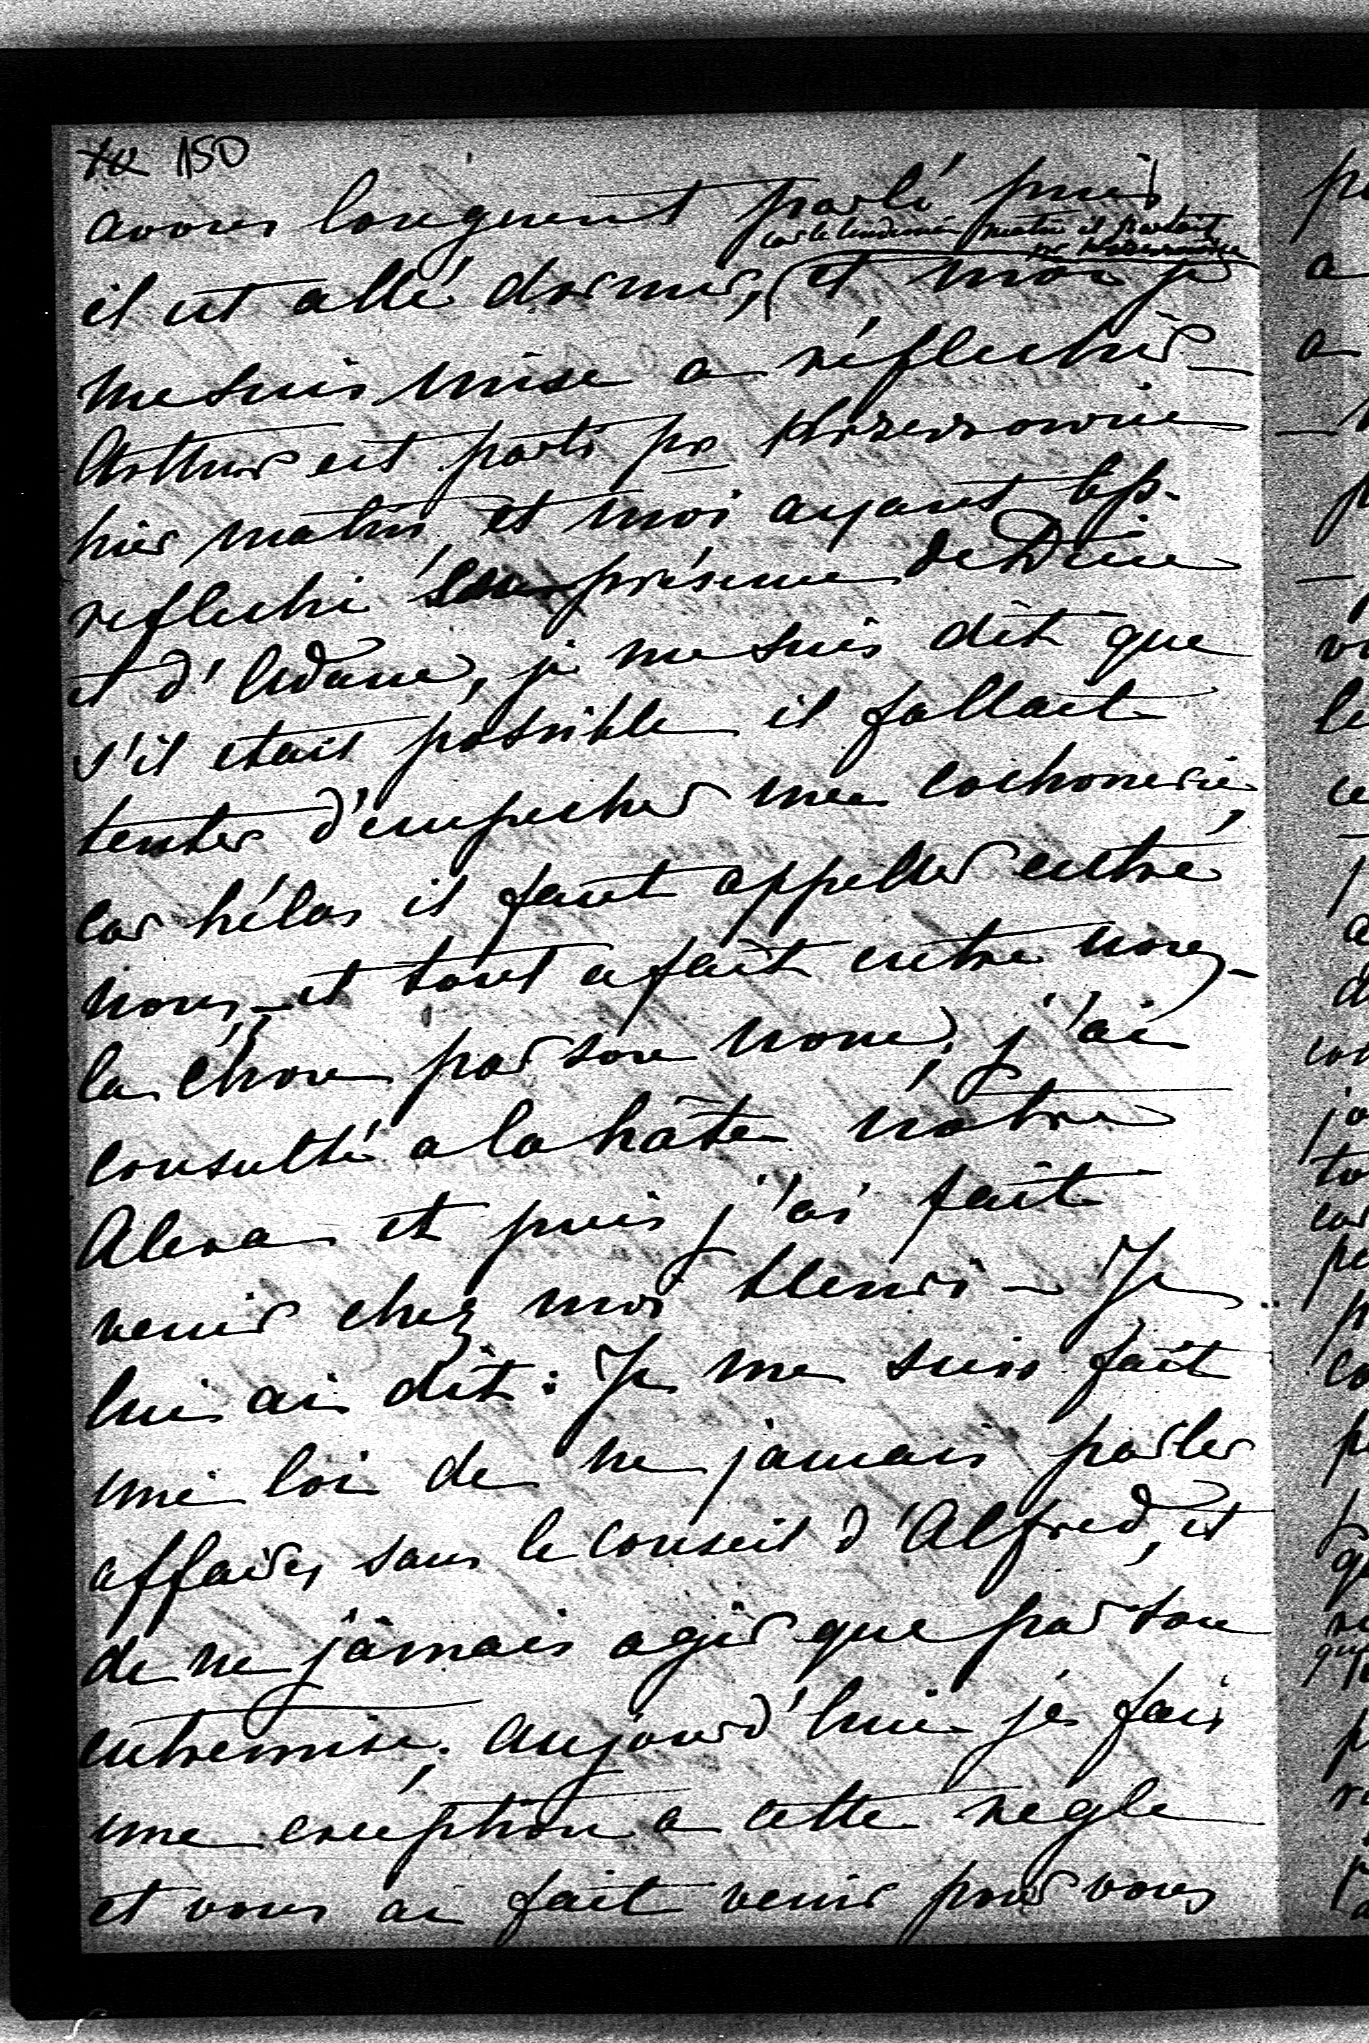 150
avons longuement parlé puis
car le lendemain matin il partait
pr Krzeszowice
il est allé dormir, et moi je
me suis mise a réflechir –
Arthur est parti pr Krzeszowice –
hier matin, et moi ayant
reflechi présence de Dieu
et d'Adam, je me suis dit que
s'il etait possible il fallait
tenter d'empecher une cochonerie,
car hélas il faut appeller entre
nous – et tout a fait entre nous –
la chose par son nom, j'ai
consulté a la hâte nôtre
Alexa et puis j'ai fait
venir chez moi Henri – Je
lui ai dit : Je me suis fait
une loi de ne jamais parler
affaires sans le conseil d'Alfred, et
de ne jamais agir que par son
entremise. aujourd'hui je fais
une exception a cette regle
et vous ai fait venir pour vous